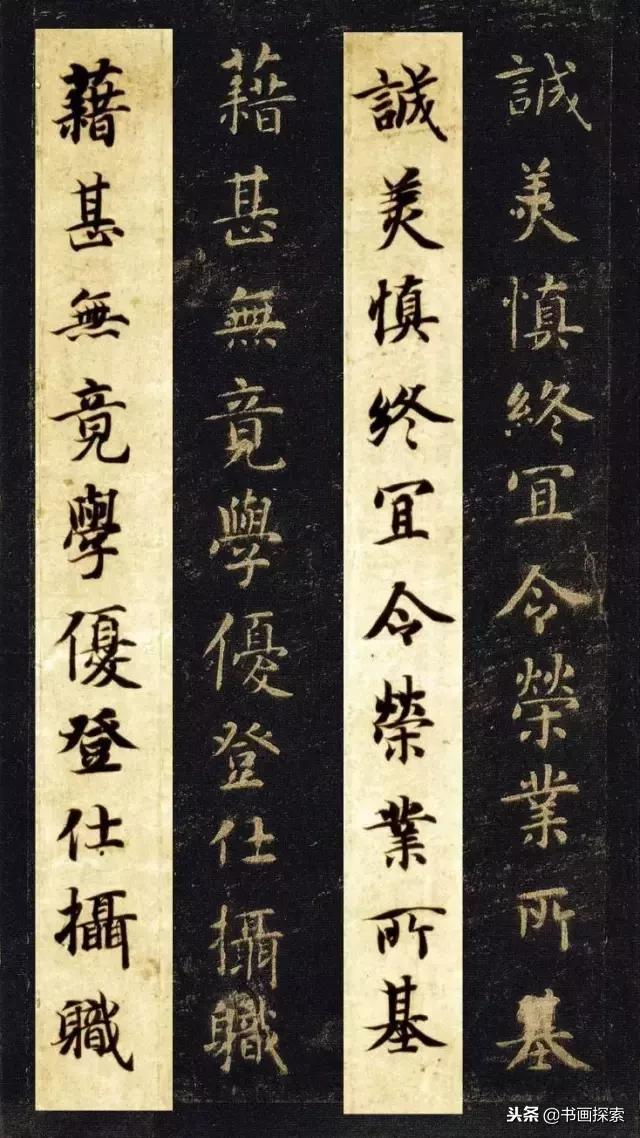 誠美慎終宜令榮業所基
誠美慎終宜令榮業所基
藉甚無竟學優登仕攝職
藉甚無竟學優登仕攝職
头条 @书画探索